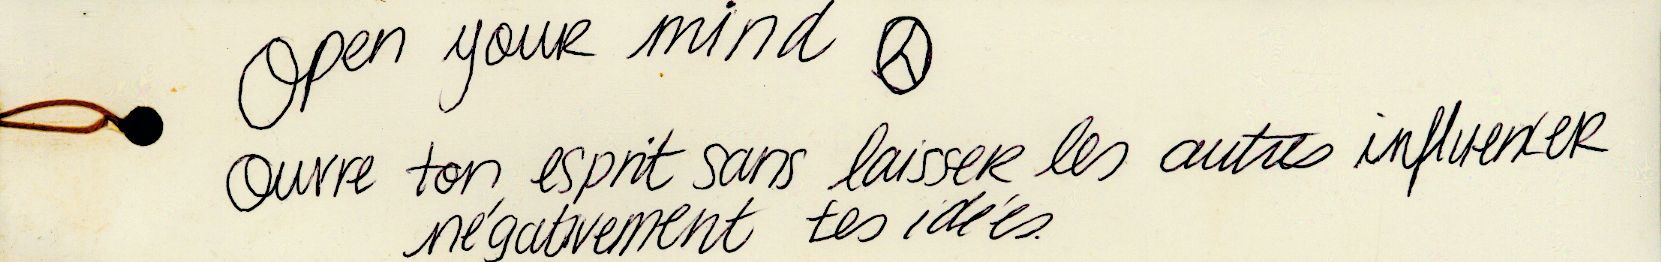 Open your mind
Ouvre ton esprit sans laisser les autres influencer
négativement tes idées.